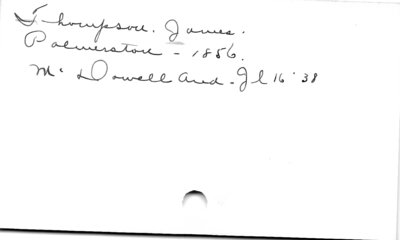 Thompson. James.
Palmerston - 1856.
Mc Dowell and - Jl 16 '38